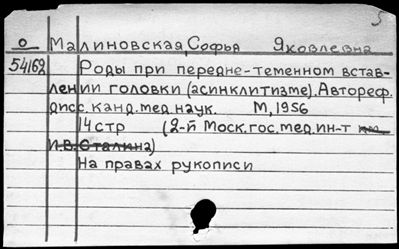 О Малиновская, Софья Яковлевна
54162 Роды при передне-теменном встав-
лении головки (асинклитизме). Автореф.
дисс. канд. мед. наук. М, 1956
14 стр (2-й Моск. гос. мед. ин-т им
И.В. Сталина)
На правах рукописи